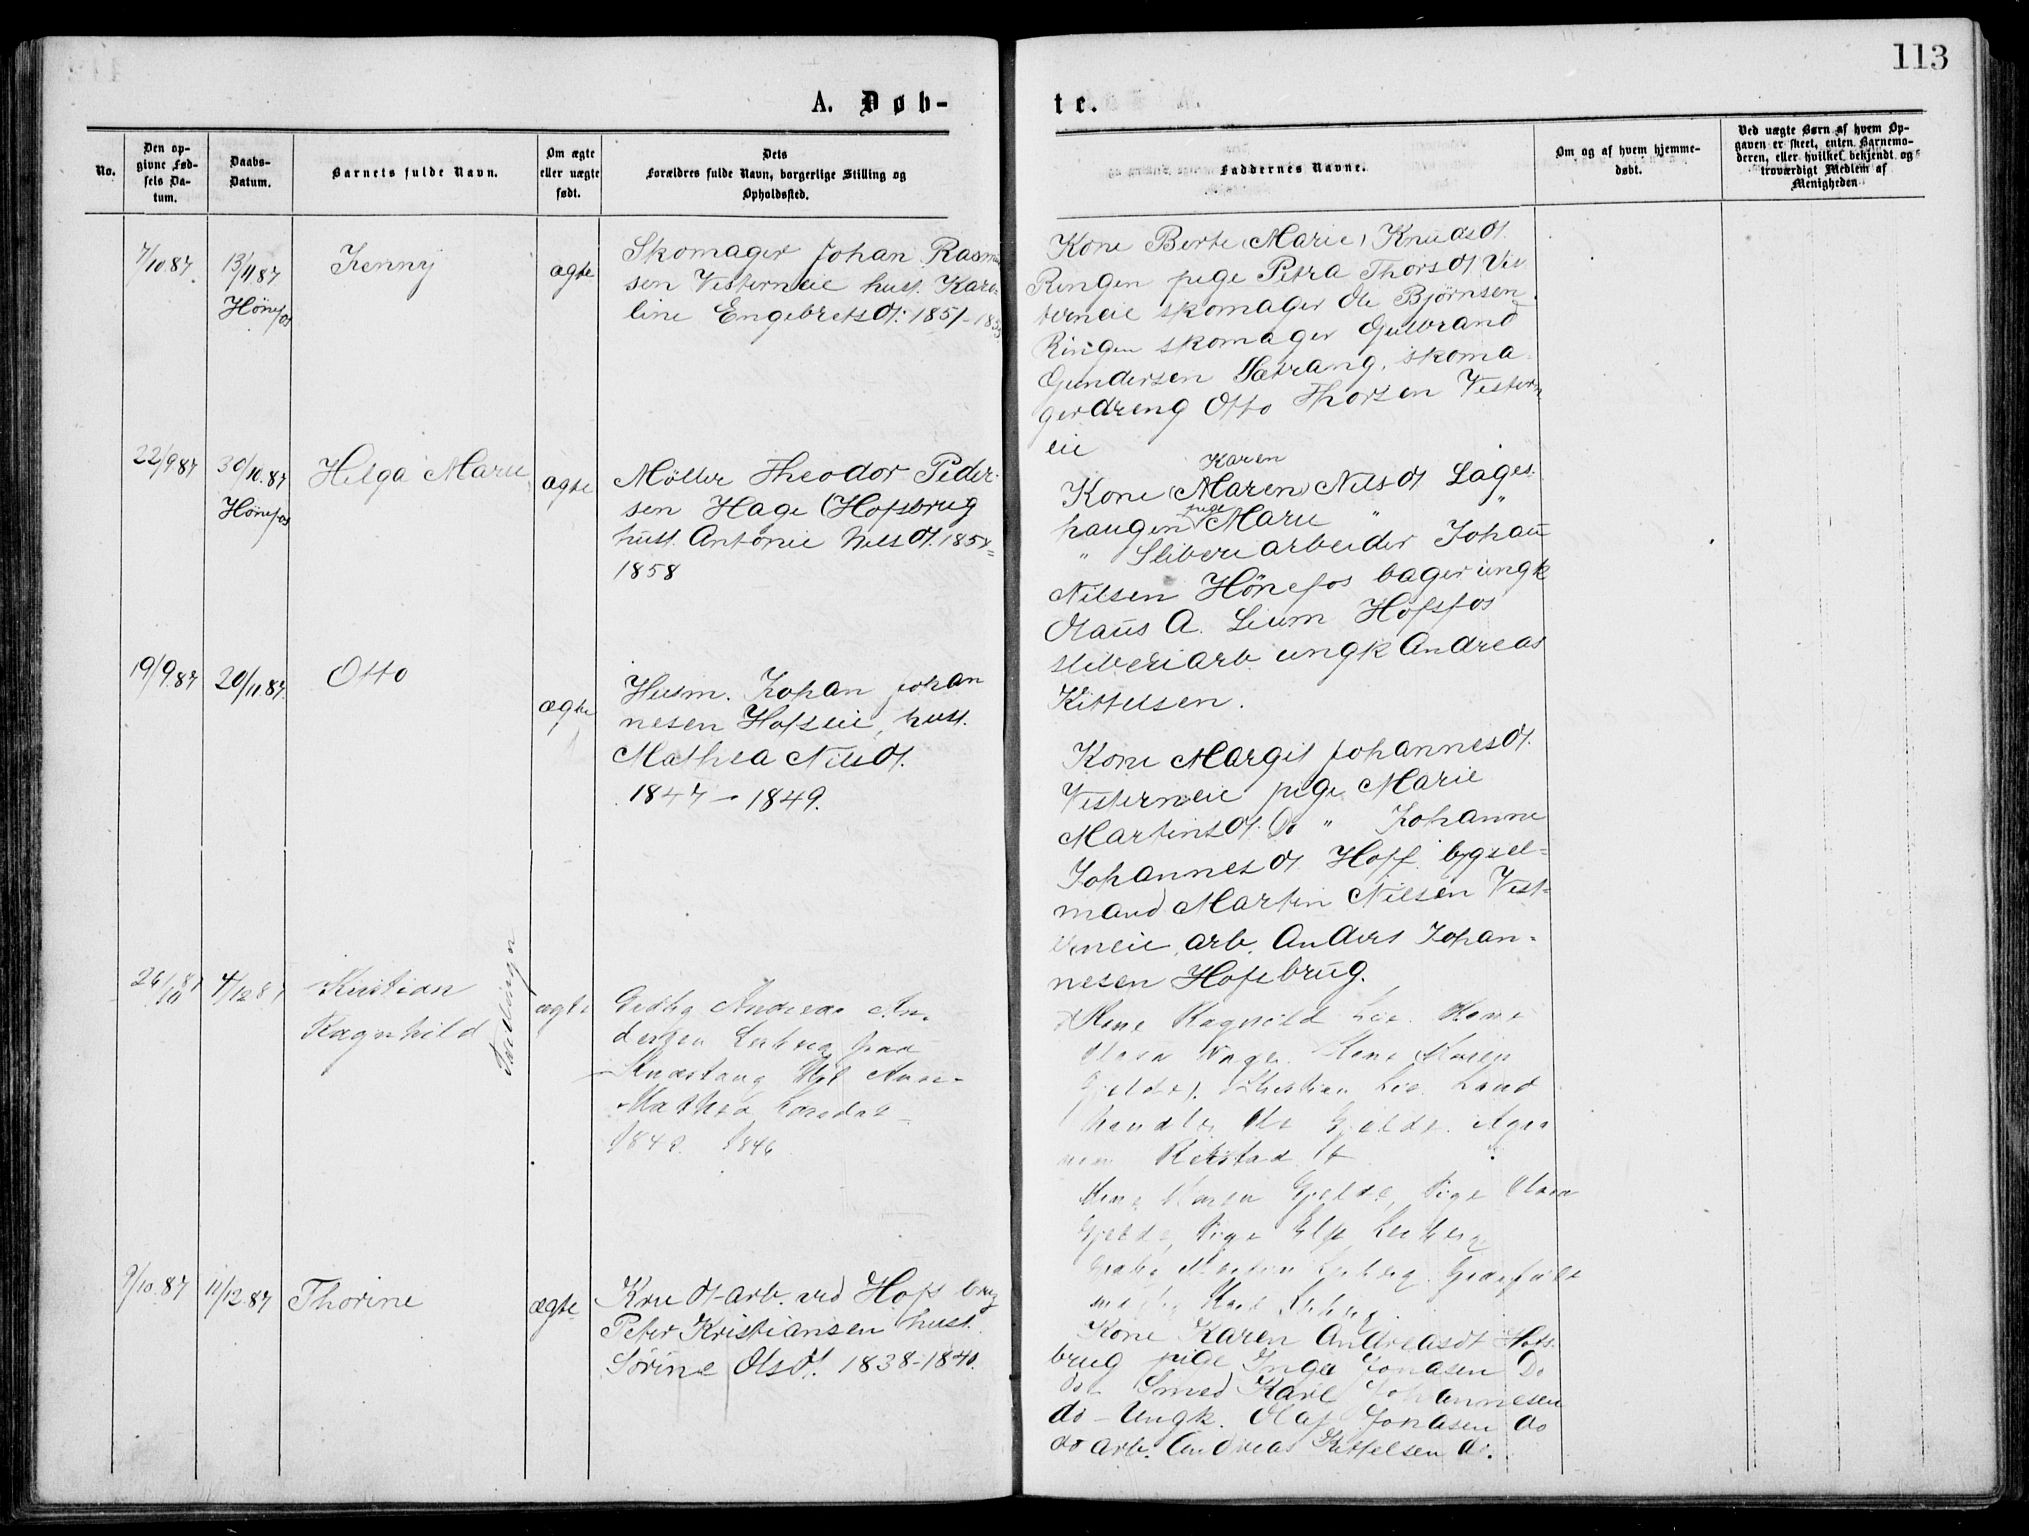 113
A. Døb-
te.
No.
Den op-
givne Fød-
sels Da-
tum.
Daabs-
Datum.
Barnets fulde Navn.
Om ægte
eller uægte
født.
Dets
Forældres fulde Navn, borgerlige Stilling og
Opholdssted.
Faddernes Navne.
Om og af hvem hjemme-
døbt.
Ved uægte Børn af hvem Op-
gaven er skeet, enten Barnemo-
deren, eller hvilket bekjendt og
troværdigt Medlem af
Menigheden
7/10.87
13/11 87
Hönefos
Jenny
ægte
Skomager Johan Rasmus
sen Vesterneie hust. Karo=
line Engebretsdt: 1851-185
Kone Berte (Marie) Knudsdt.
Ringen pige Petra Thorsdt Ves
terneie skomager Ole Björnsen
Ringen skomager Gulbrand
Gundersen Sætrang, skoma
gerdreng Otto Thorsen Vestern
eie
22/9 87
30/10.87
Hönefos
Helga Marie
ægte
Möller Theodor Peder-
sen Hage (Hofsbrug
hust. Antonie Nilsdt. 185
1858
Karen
Kone (Maren) Nilsdt Lages
haugen pige Marie " "
" Sliberiarbeider Johan
Nilsen Hönefos bager ungk
Olaus A. Lium Hofsfos
sliberiarb. ungk Andreas
Kittelsen.
19/9.87
20/11 87.
Otto
ægte
Husm. Johan Johan
nesen Hofseie, hust.
Mathea Nilsdt.
1847 - 1849.
Kone Margit Johannesdt.
Vesterneie pige Marie
Martinsdt. Do " Johanne
Johannesdt. Hoff. bygsel=
mand Martin Nilsen Vest=
erneie, arb. Anders Johan=
nesen Hofsbrug.
26/10 87
4/12 87
Kristian
Ragnhild
Tvillinger
ægte
Andreas An
dersen
Ana
Mathea Larsdat
1842. 1846
Kone Ragnhild Lie. Kone
Olava Kone Karen
Gjelde). Christian Lie. Land
handler Ole Gjelde. Agro
nom
Kone Karen Gjelde, Pige Olava
Gjelde, Pige
9/10.87
11/12.87
Thorine
ægte
Krudt-arb. ved Hofs brug
Peter Kristiansen hust.
Sörine Olsdt. 1838-1840.
Kone Karen Andreasdt Hofs
brug pige Inga Jonasen Do
do Smed Karl Johannesen
do - Ungk. Olaf Jonasen do
do arb. Andreas Kittelsen do.